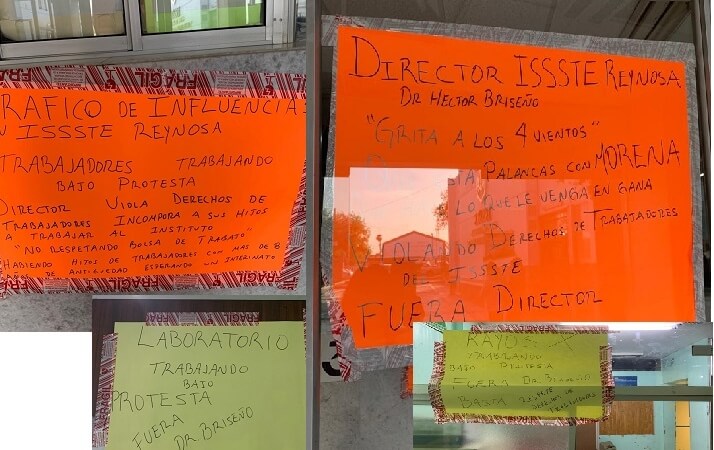 TRAFICO DE INFLUENCIAS
EN ISSSTE REYNOSA
TRABAJADORES TRABAJANDO
BAJO PROTESTA
DIRECTOR VIOLA DERECHOS DE
TRABAJADORES INCOMPORA A SUS HIJOS
A TRABAJAR AL INSTITUTO
"NO RESPETANDO BOLSA DE TRABAJO"
HABIENDO HIJOS DE TRABAJADORES CON MAS DE 8
DE ANTIGÜEDAD ESPERANDO UN INTERINATO
DIRECTOR ISSSTE REYNOSA
DR HECTOR BRISEÑO
"GRITA A LOS 4 VIENTOS"
PALANCAS CON MORENA
LO QUE LE VENGA EN GANA
VIOLANDO DERECHOS DE TRABAJADORES
DE ISSSTE
FUERA DIRECTOR
LABORATORIO
TRABAJANDO
BAJO
PROTESTA
FUERA
DR BRISEÑO
RAYOS
TRABAJANDO
BAJO PROTESTA
FUERA DR. BRISEÑO
BASTA
TRABAJADORES
FRAGIL